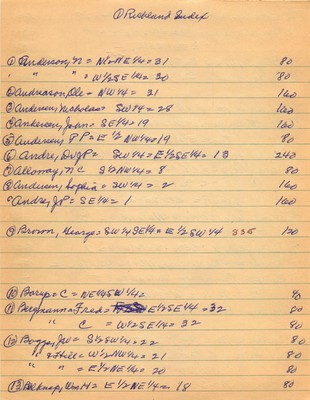 ① Richland Index
① Anderson, N = N½ NE¼ = 31 80
" " = W½ SE¼ = 30 80
② Andreason, Ole = NW¼ = 31 160
③ Anderson, Nicholas = SW¼ = 28 160
④ Ankersen, John = SE¼ = 19 160
⑤ Anderson, P P = E½ NW¼ = 19 80
⑥ Andre, Dr JP = SW¼ = E½ SE¼ = 13 240
⑦ Alloway, N C S½ NW¼ = 8 80
⑧ Anderson, Sophia = SW¼ = 2 160
Andre, JP = SE¼ = 1 160
⑨ Brown, George = SW¼ SE¼ = E½ SW¼ 336 120
⑩ Borep = C = NE¼ SW¼ = 40
⑪ Bergmann = Fred = E½ SE¼ = 32 80
" C = W½ SE¼ = 32 80
⑫ Boggs, JW = S½ SW¼ = 22 80
" & Hill = W½ NW¼ = 21 80
" " = E½ NE¼ = 20 80
⑬ Belknap, Wm H = E½ NE¼ = 18 80